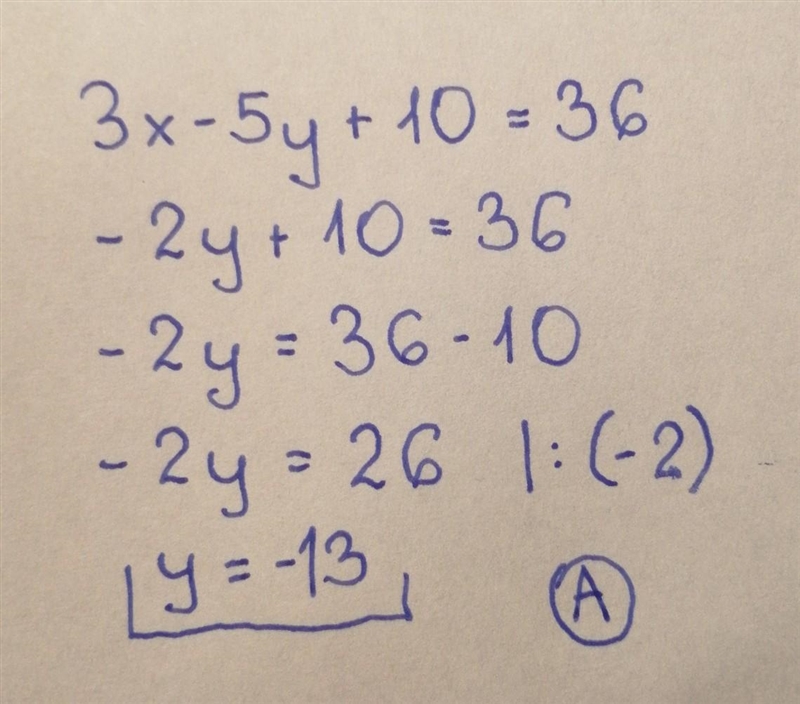 3x - 5y + 10 = 36
- 2y + 10 = 36
- 2y = 36 - 10
- 2y = 26 |: (-2)
y = -13
A